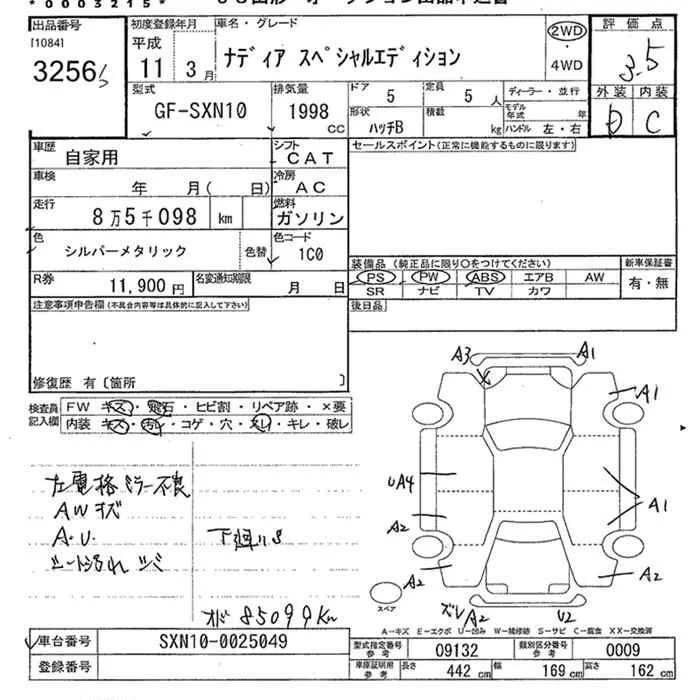 *0003215*
出品番号 初度登録年月 車名・グレード 2WD 評価点
[1084] 平成 ナディア スペシャルエディション ・ 3.5
3256 11 3月 4WD
型式 排気量 ドア 5 定員 5人 ディーラー・並行 外装 内装
GF-SXN10 1998 CC 形状 ハッチB 積載 kg モデル年式 年 ハンドル 左・右 D C
車歴 自家用 シフト CAT セールスポイント(正常に機能するものに限ります)
車検 年 月( 日) 冷房 AC
走行 8万5千098 km 燃料 ガソリン
色 シルバーメタリック 色替 色コード 1C0
装備品 (純正品に限り○をつけてください) 新車保証書
R券 11,900円 名変通知期限 月 日 PS PW ABS エアB AW 有・無
SR ナビ TV カワ
注意事項申告欄(不具合内容等は具体的に記入して下さい) 後日品
修復歴 有〔箇所 〕
検査員記入欄 FW キズ・飛石・ヒビ割・リペア跡・×要
内装 キズ・汚れ・コゲ・穴・スレ・キレ・破レ
A3 A1
A1
左電格ミラー不良
UA4
AWキズ
A1
A.U. 下廻りS
A2
シート汚れ シミ
A2 A2
スペア
オド 85099Km ズレ A2 U2
A-キズ E-エクボ U-凹み W-補修跡 S-サビ C-腐食 XX-交換済
車台番号 SXN10-0025049 型式指定番号参考 09132 類別区分番号参考 0009
登録番号 車庫証明用参考 長さ 442 cm 幅 169 cm 高さ 162 cm